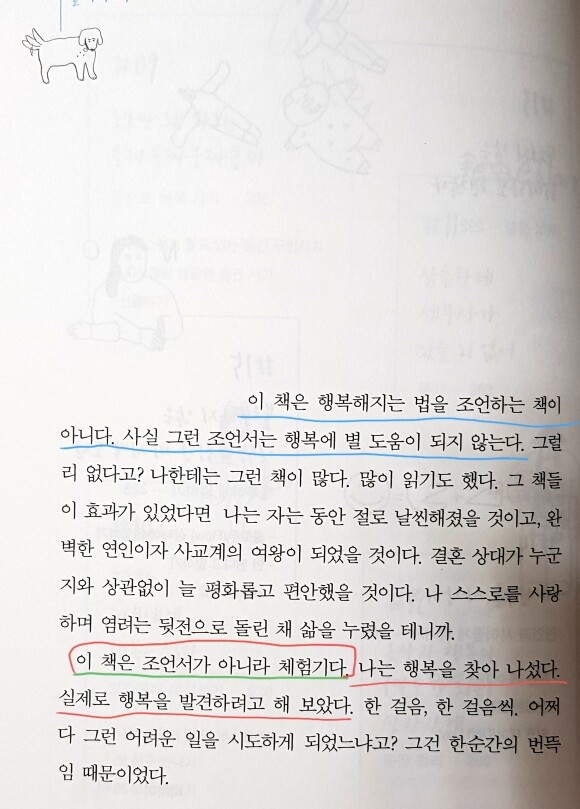 이 책은 행복해지는 법을 조언하는 책이
아니다. 사실 그런 조언서는 행복에 별 도움이 되지 않는다. 그럴
리 없다고? 나한테는 그런 책이 많다. 많이 읽기도 했다. 그 책들
이 효과가 있었다면 나는 자는 동안 절로 날씬해졌을 것이고, 완
벽한 연인이자 사교계의 여왕이 되었을 것이다. 결혼 상대가 누군
지와 상관없이 늘 평화롭고 편안했을 것이다. 나 스스로를 사랑
하며 염려는 뒷전으로 돌린 채 삶을 누렸을 테니까.
이 책은 조언서가 아니라 체험기다. 나는 행복을 찾아 나섰다.
실제로 행복을 발견하려고 해 보았다. 한 걸음, 한 걸음씩. 어쩌
다 그런 어려운 일을 시도하게 되었느냐고? 그건 한순간의 번뜩
임 때문이었다.